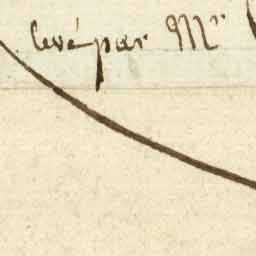 levé par Mr